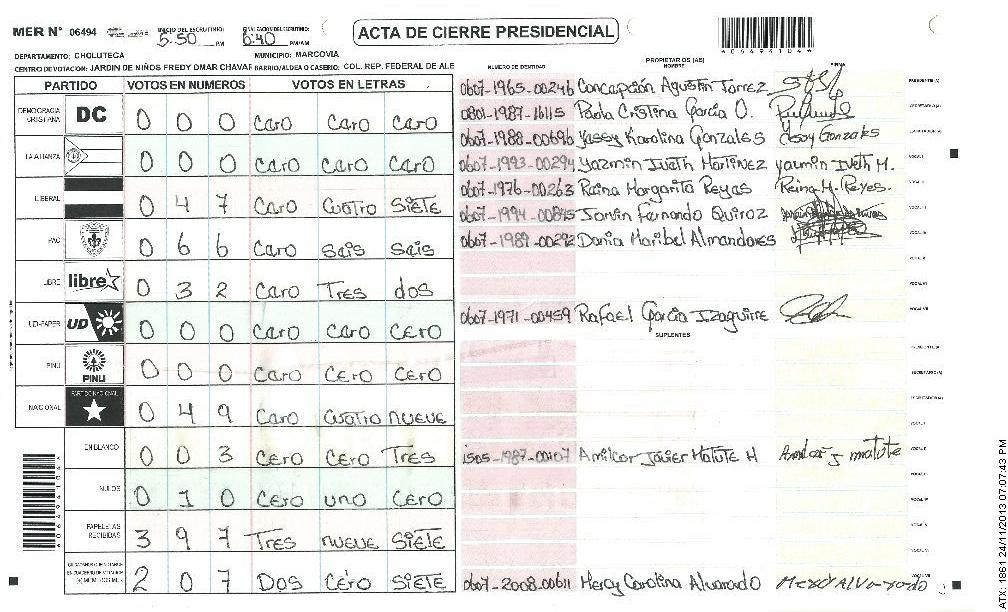 MER N° 06494 INICIO DEL ESCRUTINIO: 5:50 PM FINALIZACION DEL ESCRUTINIO: 6:40 PM/AM
ACTA DE CIERRE PRESIDENCIAL
DEPARTAMENTO: CHOLUTECA MUNICIPIO: MARCOVIA
CENTRO DE VOTACION: JARDIN DE NIÑOS FREDY OMAR CHAVAR BARRIO/ALDEA O CASERIO: COL. REP. FEDERAL DE ALE
PARTIDO VOTOS EN NUMEROS VOTOS EN LETRAS
DEMOCRACIA CRISTIANA DC 0 0 0 Caro Caro Caro
LA ALIANZA 0 0 0 Caro Caro Caro
LIBERAL 0 4 7 Caro Cuatro Siete
PAC 0 6 6 Caro Sais Sais
LIBRE libre 0 3 2 Caro Tres dos
UD-FAPER UD 0 0 0 Caro Caro Cero
PINU PINU 0 0 0 Caro Cero Cero
NACIONAL PARTIDO NACIONAL 0 4 9 Caro Cuatro nueve
EN BLANCO 0 0 3 Cero Cero Tres
NULOS 0 1 0 Cero uno Cero
PAPELETAS RECIBIDAS 3 9 7 Tres nueve Siete
2 0 7 Dos Cero Siete
NUMERO DE IDENTIDAD PROPIETARIOS (AS) NOMBRE FIRMA
0607-1965-00246 Concepción Agustin Torrez PRESIDENTE(A)
0801-1987-16115 Paola Cristina García O. SECRETARIO(A)
0607-1988-00696 Yassy Karolina Gonzales Yessy Gonzales ESCRUTADOR(A)
0607-1993-00294 Yazmin Iveth Martinez Yazmin Iveth M. VOCAL I
0607-1976-00263 Raina Margarita Reyas Reina M. Reyes. VOCAL II
0607-1994-00845 Jorvin Fernando Quiroz VOCAL III
0607-1989-00292 Dania Maribel Almandares VOCAL IV
VOCAL V
VOCAL VI
0607-1971-00459 Rafael García Izaguirre VOCAL VII
SUPLENTES
PRESIDENTE(A)
SECRETARIO(A)
ESCRUTADOR(A)
VOCAL I
1505-1987-00107 Amilcar Javier Matute M Amilcar J matute VOCAL II
VOCAL III
VOCAL IV
VOCAL V
VOCAL VI
0607-2008-00611 Mercy Carolina Alvarado Mercy Alvarado VOCAL VII
ATX-1981 24/11/2013 07:07:43 PM